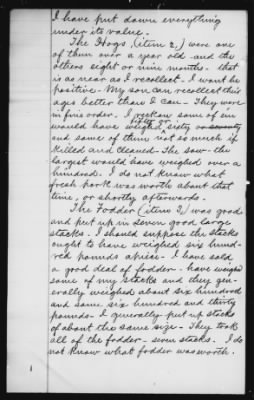 I have put down everything
under its value.
The Hogs (item 2,) were one
of them over a year old and the
others eight or nine months - that
is as near as I recollect. I wont be
positive - My son can recollect their
ages better than I can - They were
in fine order. I reckon some of em
would have weighed fifty or sixty or seventy
and some of them not so much if
killed and cleaned - The sow - the
largest would have weighed over a
hundred. I do not know what
fresh pork was worth about that
time, or shortly afterwards.
The Fodder (item 2) was good
and put up in seven good large
stacks. I should suppose the stacks
ought to have weighed six hund-
red pounds apiece - I have sold
a good deal of fodder - have weighed
some of my stacks and they gen-
erally weighed about six hundred
and some six hundred and thirty
pounds - I generally put up stacks
of about the same size - They took
all of the fodder - seven stacks. I do
not know what fodder was worth.